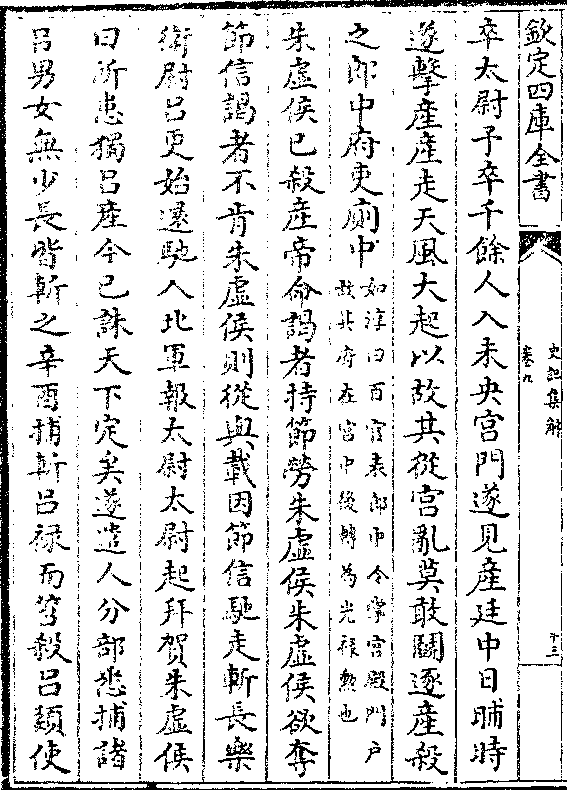 欽定四庫全書
史記集解
卷九
十三
卒太尉予卒千餘人入未央宮門遂見産廷中日晡時
遂擊産産走天風大起以故其從官亂莫敢鬭逐産殺
之郎中府吏廁中如淳曰百官表郎中令掌宮殿門戶
故其府在宮中後轉為光祿勲也
朱虛侯已殺産帝命謁者持節勞朱虛侯朱虛侯欲奪
節信謁者不肯朱虛侯則從與載因節信馳走斬長樂
衛尉吕更始還馳入北軍報太尉太尉起拜賀朱虛侯
曰所患獨吕産今已誅天下定矣遂遣人分部悉捕諸
吕男女無少長皆斬之辛酉捕斬吕祿而笞殺吕嬃使